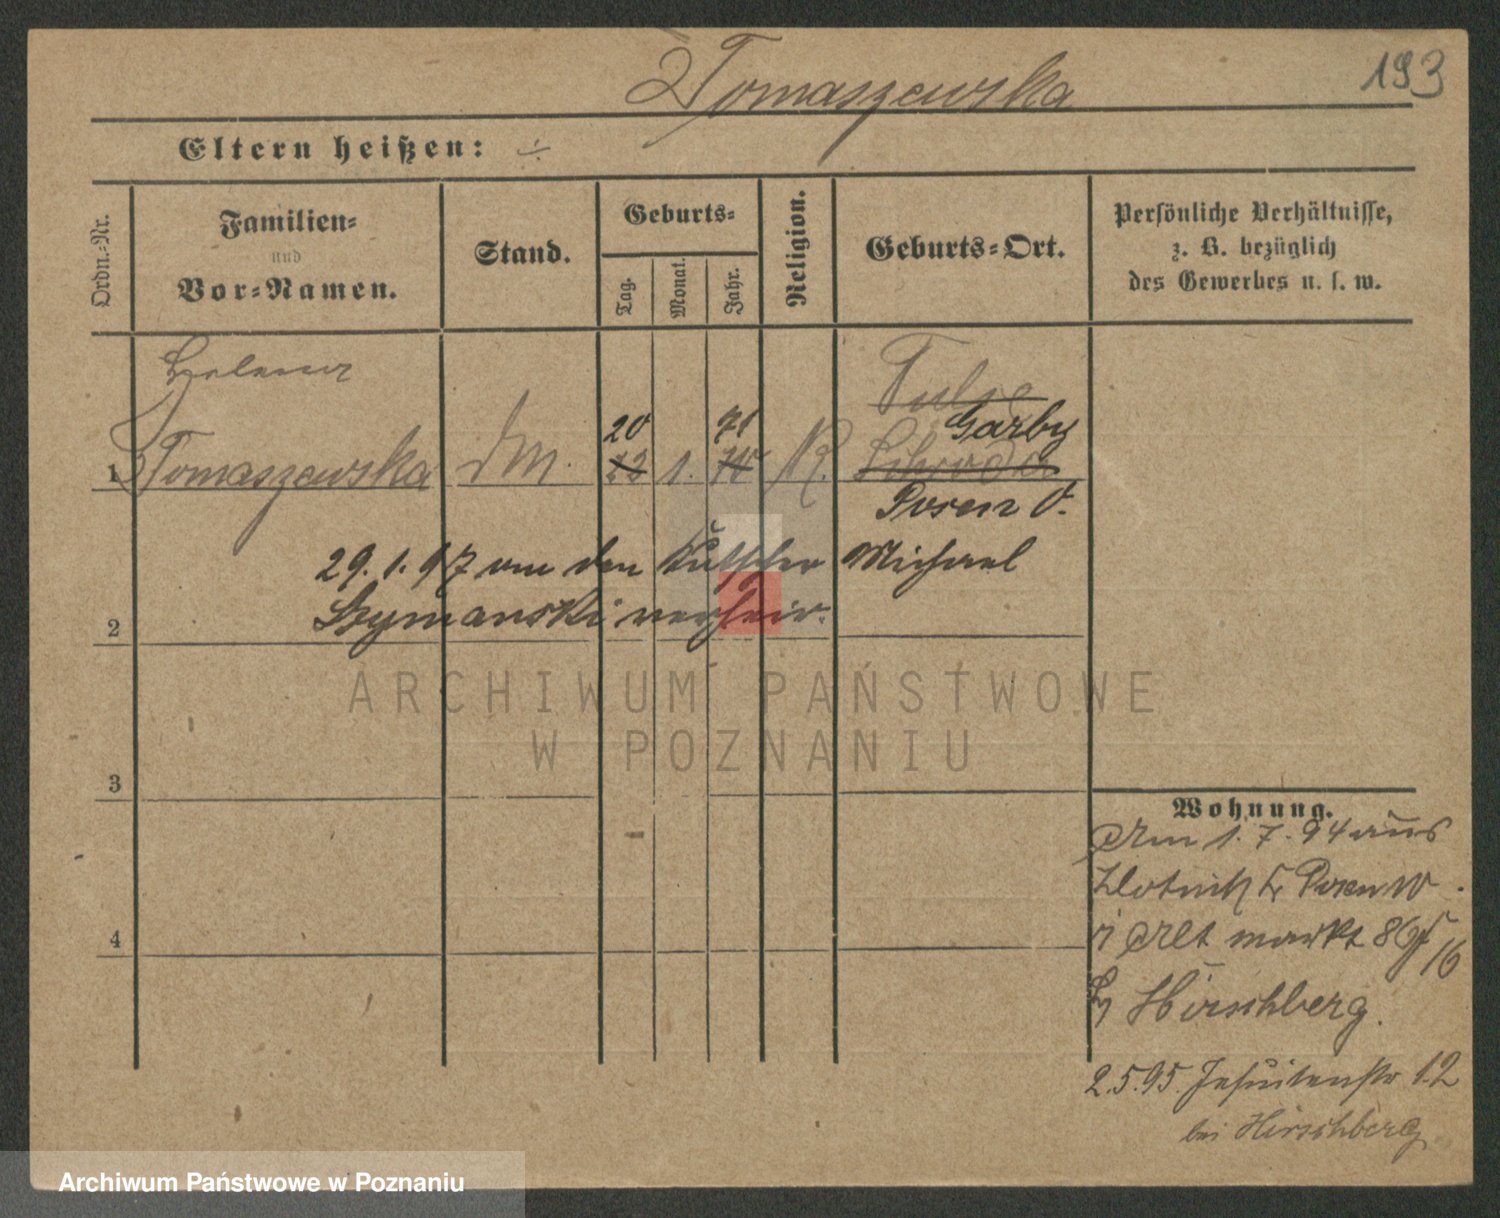 Tomaszewska
193
Eltern heißen: ÷
Ordn.-Nr.
Familien-
und
Vor-Namen.
Stand.
Geburts-
Tag.
Monat.
Jahr.
Religion.
Geburts-Ort.
Persönliche Verhältnisse,
z. B. bezüglich
des Gewerbes u. s. w.
Helena
Tulce
20
71
Garby
1 Tomaszewska
23 1. K.
Schroda
Posen O.
29.1.97 an den Kutscher Michael
Szymanski verheir.
2
ARCHIWUM PAŃSTWOWE
W POZNANIU
3
Wohnung.
Am 1.7.94 aus
Zlotnik Kr Posen W.
Altmarkt 86
16
Hirschberg.
4
2.5.95. Jesuitenstr 12
bei Hirschberg
Archiwum Państwowe w Poznaniu